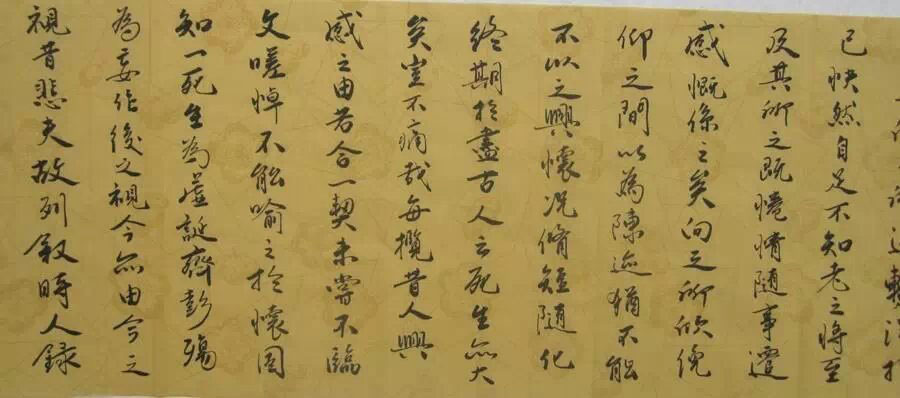 己快然自足不知老之將至
及其所之既惓情隨事遷
感慨係之矣向之所欣俛
仰之間以為陳迹猶不能
不以之興懷況脩短隨化
終期於盡古人云死生亦大
矣豈不痛哉每攬昔人興
感之由若合一契未嘗不臨
文嗟悼不能喻之於懷固
知一死生為虛誕齊彭殤
為妄作後之視今亦由今之
視昔悲夫故列敘時人錄